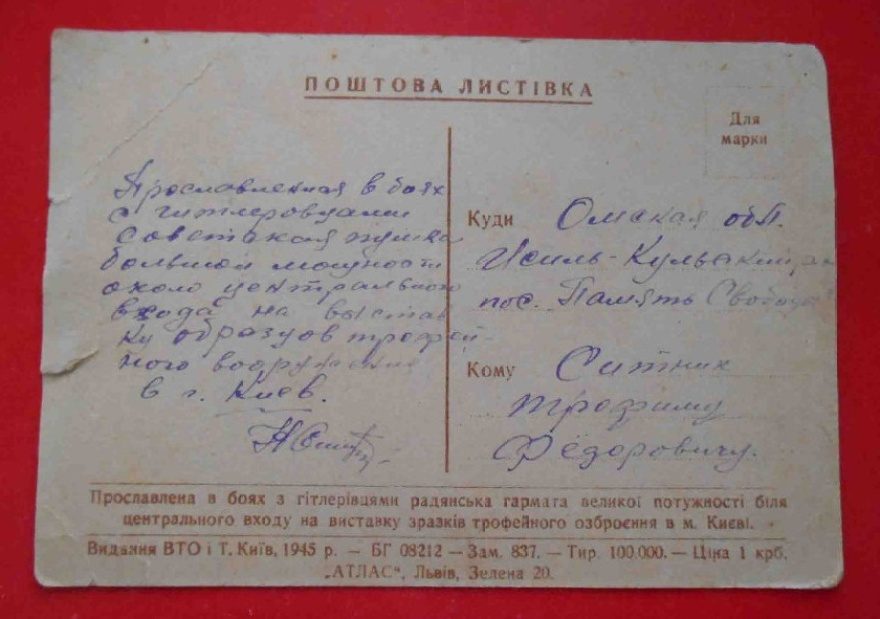 ПОШТОВА ЛИСТІВКА
Для
марки
Прославленная в боях
с гитлеровцами
советская пушка
большой мощности
около центрального
входа на выстав
ку образцов трофей-
ного вооружения
в г. Киев.
Куди Омская обл.
Исиль-Кульский
пос. Память Свободы
Кому Ситник
Трофиму
Фёдоровичу.
Прославлена в боях з гітлерівцями радянська гармата великої потужності біля
центрального входу на виставку зразків трофейного озброєння в м. Києві.
Видання ВТО і Т. Київ, 1945 р. — БГ 08212 — Зам. 837. — Тир. 100.000. — Ціна 1 крб.
„АТЛАС“, Львів, Зелена 20.